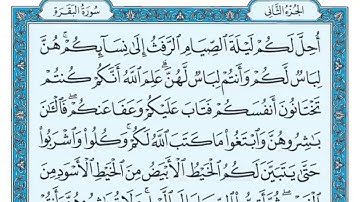 الجزء الثاني سورة البقرة
أُحِلَّ لَكُمْ لَيْلَةَ ٱلصِّيَامِ ٱلرَّفَثُ إِلَىٰ نِسَآئِكُمْ ۚ هُنَّ
لِبَاسٌ لَّكُمْ وَأَنتُمْ لِبَاسٌ لَّهُنَّ ۗ عَلِمَ ٱللَّهُ أَنَّكُمْ كُنتُمْ
تَخْتَانُونَ أَنفُسَكُمْ فَتَابَ عَلَيْكُمْ وَعَفَا عَنكُمْ ۖ فَٱلْـَٰٔنَ
بَـٰشِرُوهُنَّ وَٱبْتَغُوا۟ مَا كَتَبَ ٱللَّهُ لَكُمْ ۚ وَكُلُوا۟ وَٱشْرَبُوا۟
حَتَّىٰ يَتَبَيَّنَ لَكُمُ ٱلْخَيْطُ ٱلْأَبْيَضُ مِنَ ٱلْخَيْطِ ٱلْأَسْوَدِ مِنَ